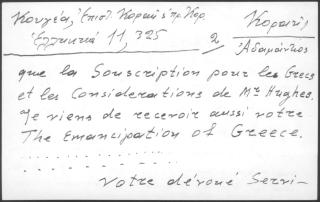 Κουγέα, Ἐπιστ. Κοραῆ πρ. Κορ.
Ἑλληνικά 11, 325
2
Κοραῆς
Ἀδαμάντιος
que la Souscription pour les Grecs
et les Considerations de Mr Hughes.
Je viens de recevoir aussi votre
The Emancipation of Greece.
. . . . . . . . . . . . . . .
. . . . . . . . . .
Votre dévoué Servi-